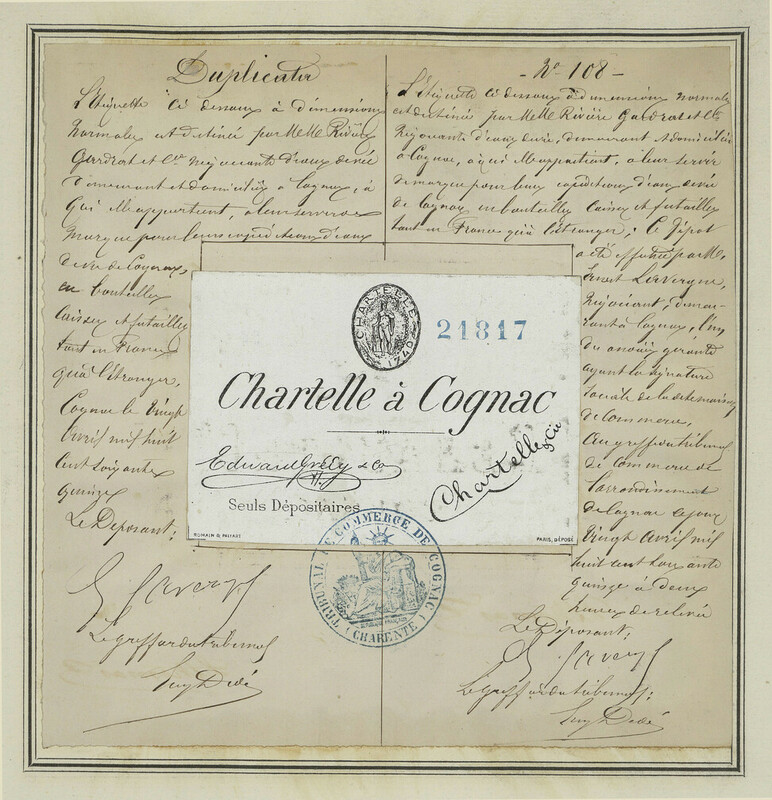 Duplicata
L'Etiquette ci dessous à dimensions
normales est destinée par MM Rivière
Gardrat et Cie négociants d'eaux de vie
demeurant et domiciliés à Cognac, à
qui elle appartient, à leur servir de
marque pour leurs expéditions d'eaux
de vie de Cognac,
en bouteilles
caisses et futailles
tant en France
qu'à l'étranger.
Cognac le vingt
avril mil huit
cent soixante
quinze
Le Déposant,
Le greffier du tribunal
Guy Dedé
No 108
L'Etiquette ci dessous à dimensions normales
est destinée par MM Rivière Gardrat et Cie
négociants d'eaux de vie, demeurant et domiciliés
à Cognac, à qui elle appartient, à leur servir
de marque pour leurs expéditions d'eaux de vie
de Cognac, en bouteilles caisses et futailles
tant en France qu'à l'étranger; ce dépôt
a été effectué par M.
Ernest Lavergne,
négociant, demeu-
rant à Cognac, l'un
des associés gérants
ayant la signature
sociale de la dite maison
de commerce,
au greffe du tribunal
de commerce de
l'arrondissement
de Cognac ce jour
vingt avril mil
huit cent soixante
quinze à deux
heures de relevée
Le Déposant,
E Lavergne
Le greffier du tribunal;
Guy Dedé
CHARTELLE
1740
21817
Chartelle à Cognac
Edward Grély & Co
Chartelle & Cie
Seuls Dépositaires
ROMAIN & PALYART
PARIS, DÉPOSÉ
TRIBUNAL DE COMMERCE DE COGNAC
(CHARENTE)